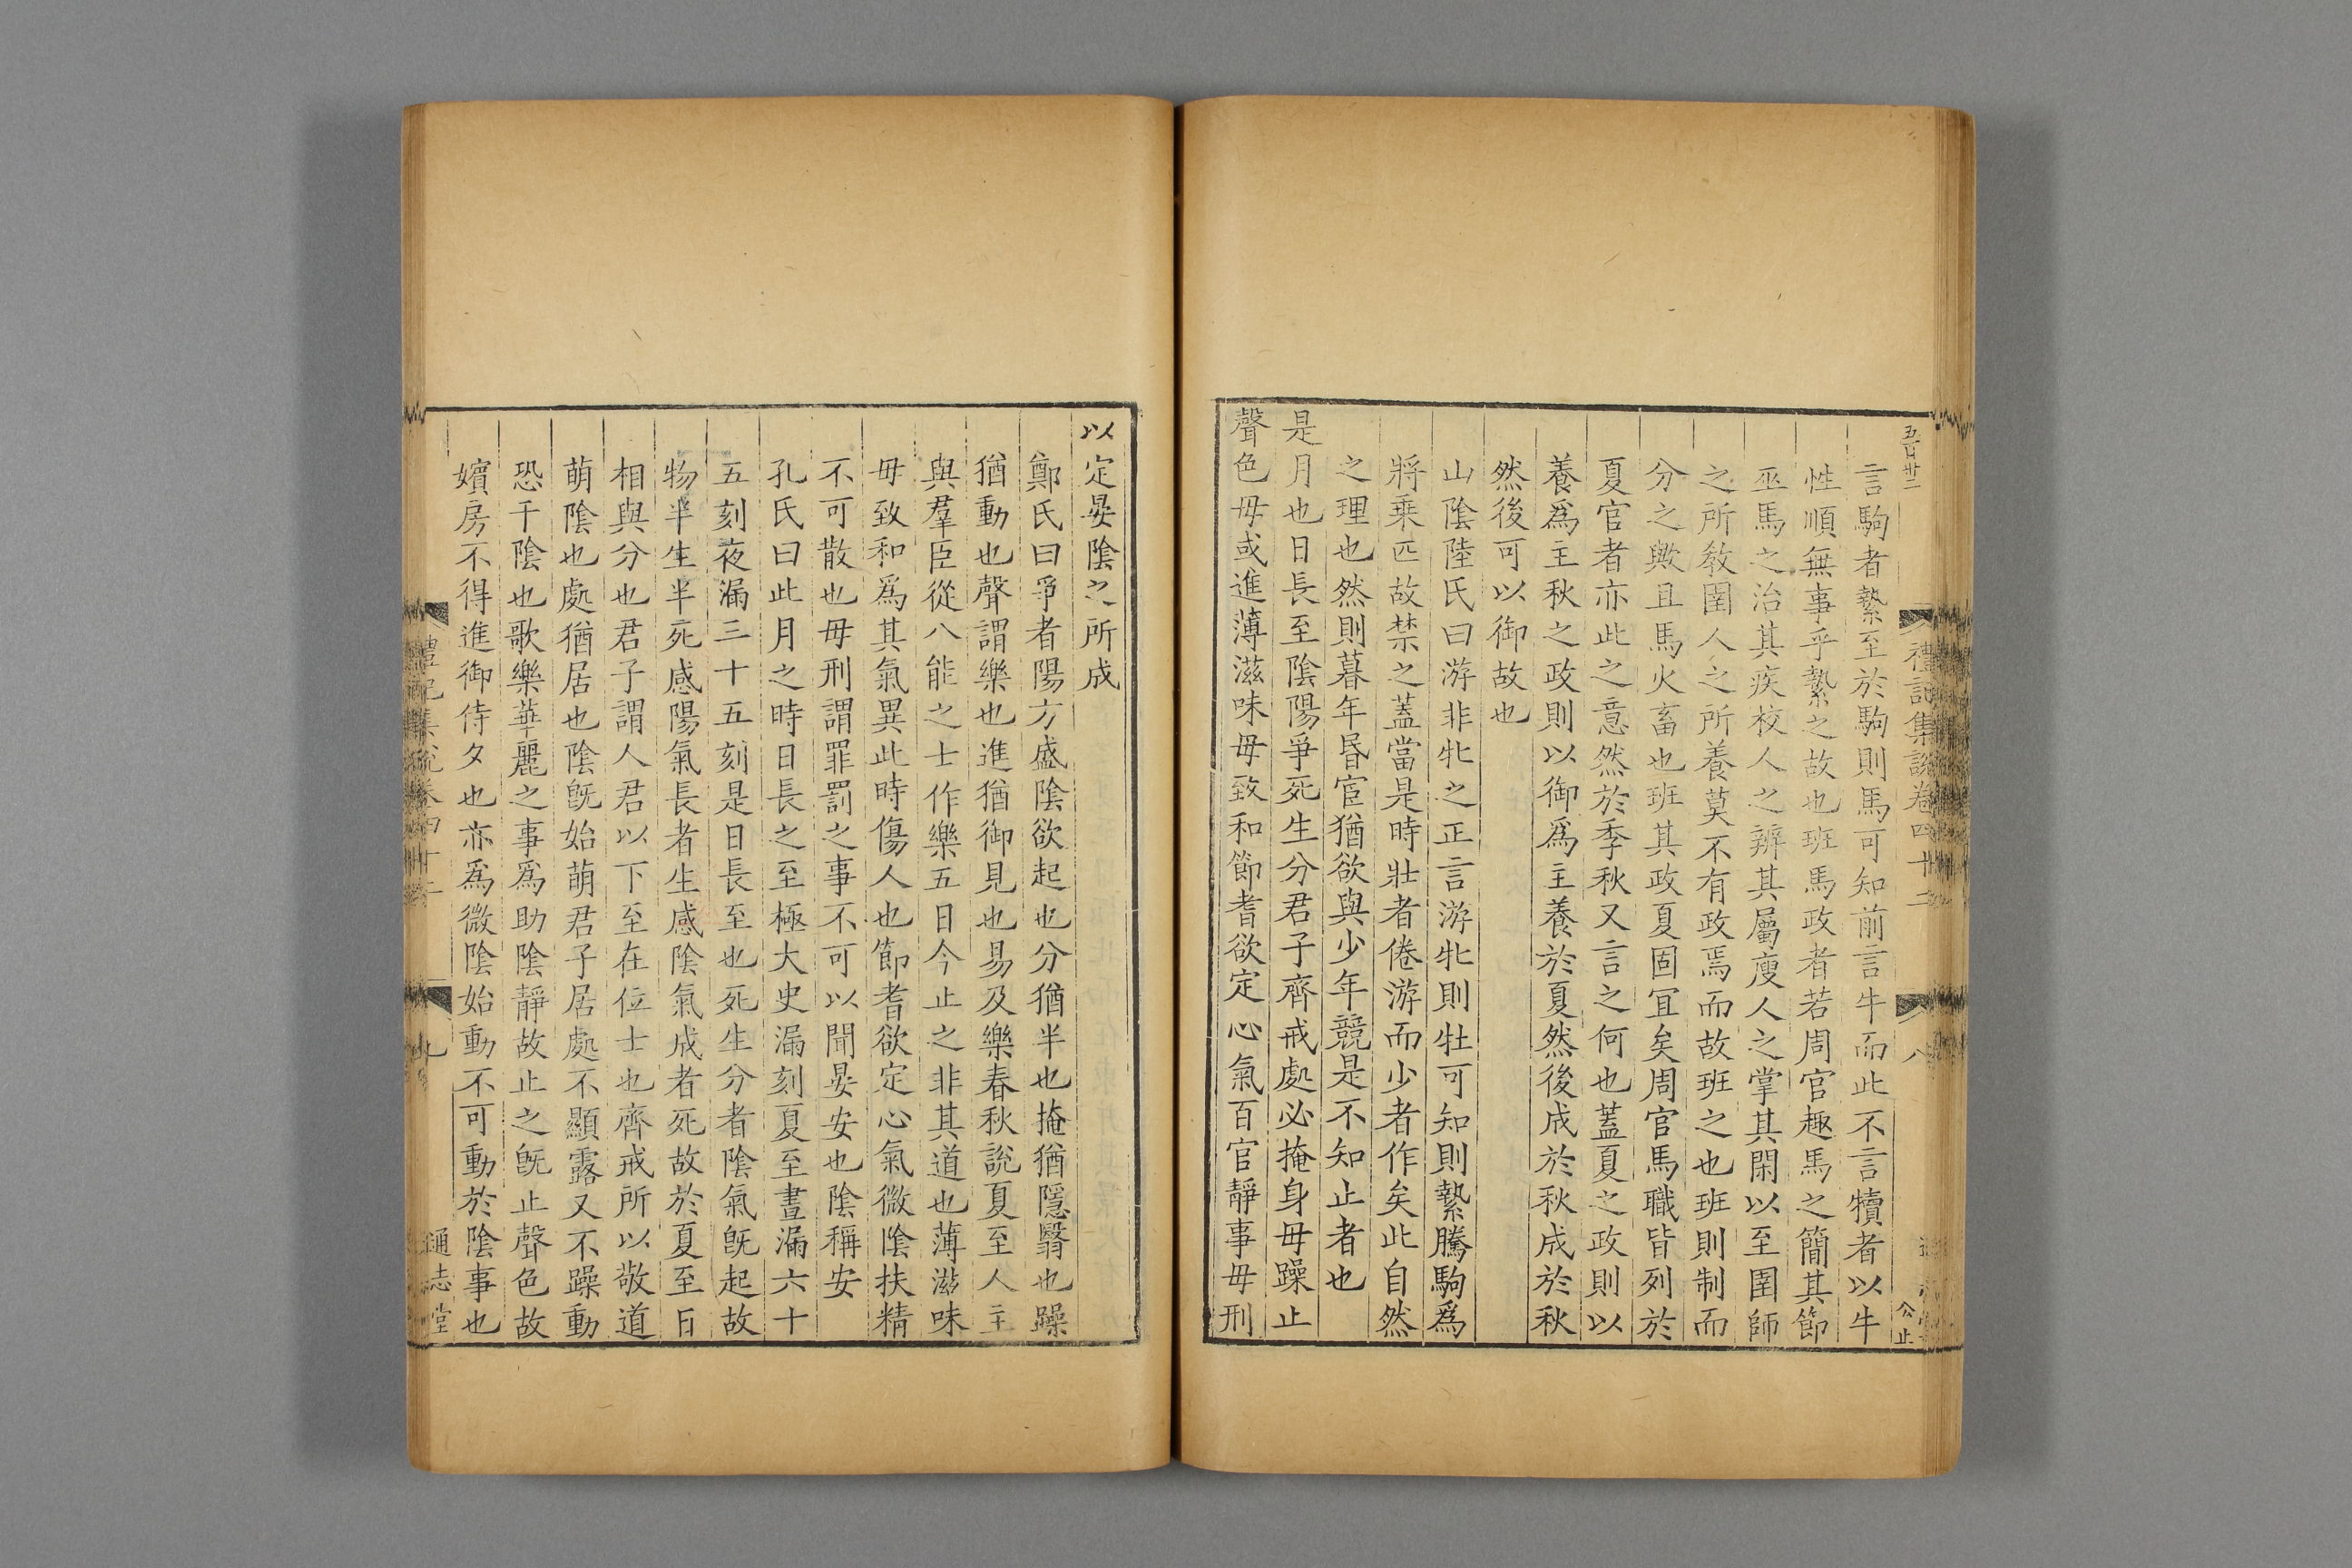 禮記集說卷四十二
八
公止
言駒者縶至於駒則馬可知前言牛而此不言犢者以牛
性順無事乎縶之故也班馬政者若周官趣馬之簡其節
巫馬之治其疾校人之辨其屬廋人之掌其閑以至圉師
之所敎圉人之所養莫不有政焉而故班之也班則制而
分之歟且馬火畜也班其政夏固冝矣周官馬職皆列於
夏官者亦此之意然於季秋又言之何也蓋夏之政則以
養爲主秋之政則以御爲主養於夏然後成於秋成於秋
然後可以御故也
山陰陸氏曰游非牝之正言游牝則牡可知則縶騰駒爲
將乗匹故禁之蓋當是時壯者倦游而少者作矣此自然
之理也然則暮年昏宦猶欲與少年競是不知止者也
是月也日長至陰陽爭死生分君子齊戒處必掩身毋躁止
聲色毋或進薄滋味毋致和節耆欲定心氣百官靜事毋刑
以定晏陰之所成
鄭氏曰爭者陽方盛陰欲起也分猶半也掩猶隱翳也躁
猶動也聲謂樂也進猶御見也易及樂春秋說夏至人主
與羣臣從八能之士作樂五日今止之非其道也薄滋味
毋致和爲其氣異此時傷人也節耆欲定心氣微陰扶精
不可散也毋刑謂罪罰之事不可以聞晏安也陰稱安
孔氏曰此月之時日長之至極大史漏刻夏至晝漏六十
五刻夜漏三十五刻是日長至也死生分者陰氣旣起故
物半生半死感陽氣長者生感陰氣成者死故於夏至日
相與分也君子謂人君以下至在位士也齊戒所以敬道
萌陰也處猶居也陰旣始萌君子居處不顯露又不躁動
恐干陰也歌樂華麗之事爲助陰靜故止之旣止聲色故
嬪房不得進御侍夕也亦爲微陰始動不可動於陰事也
禮記集說卷四十二
九
通志堂